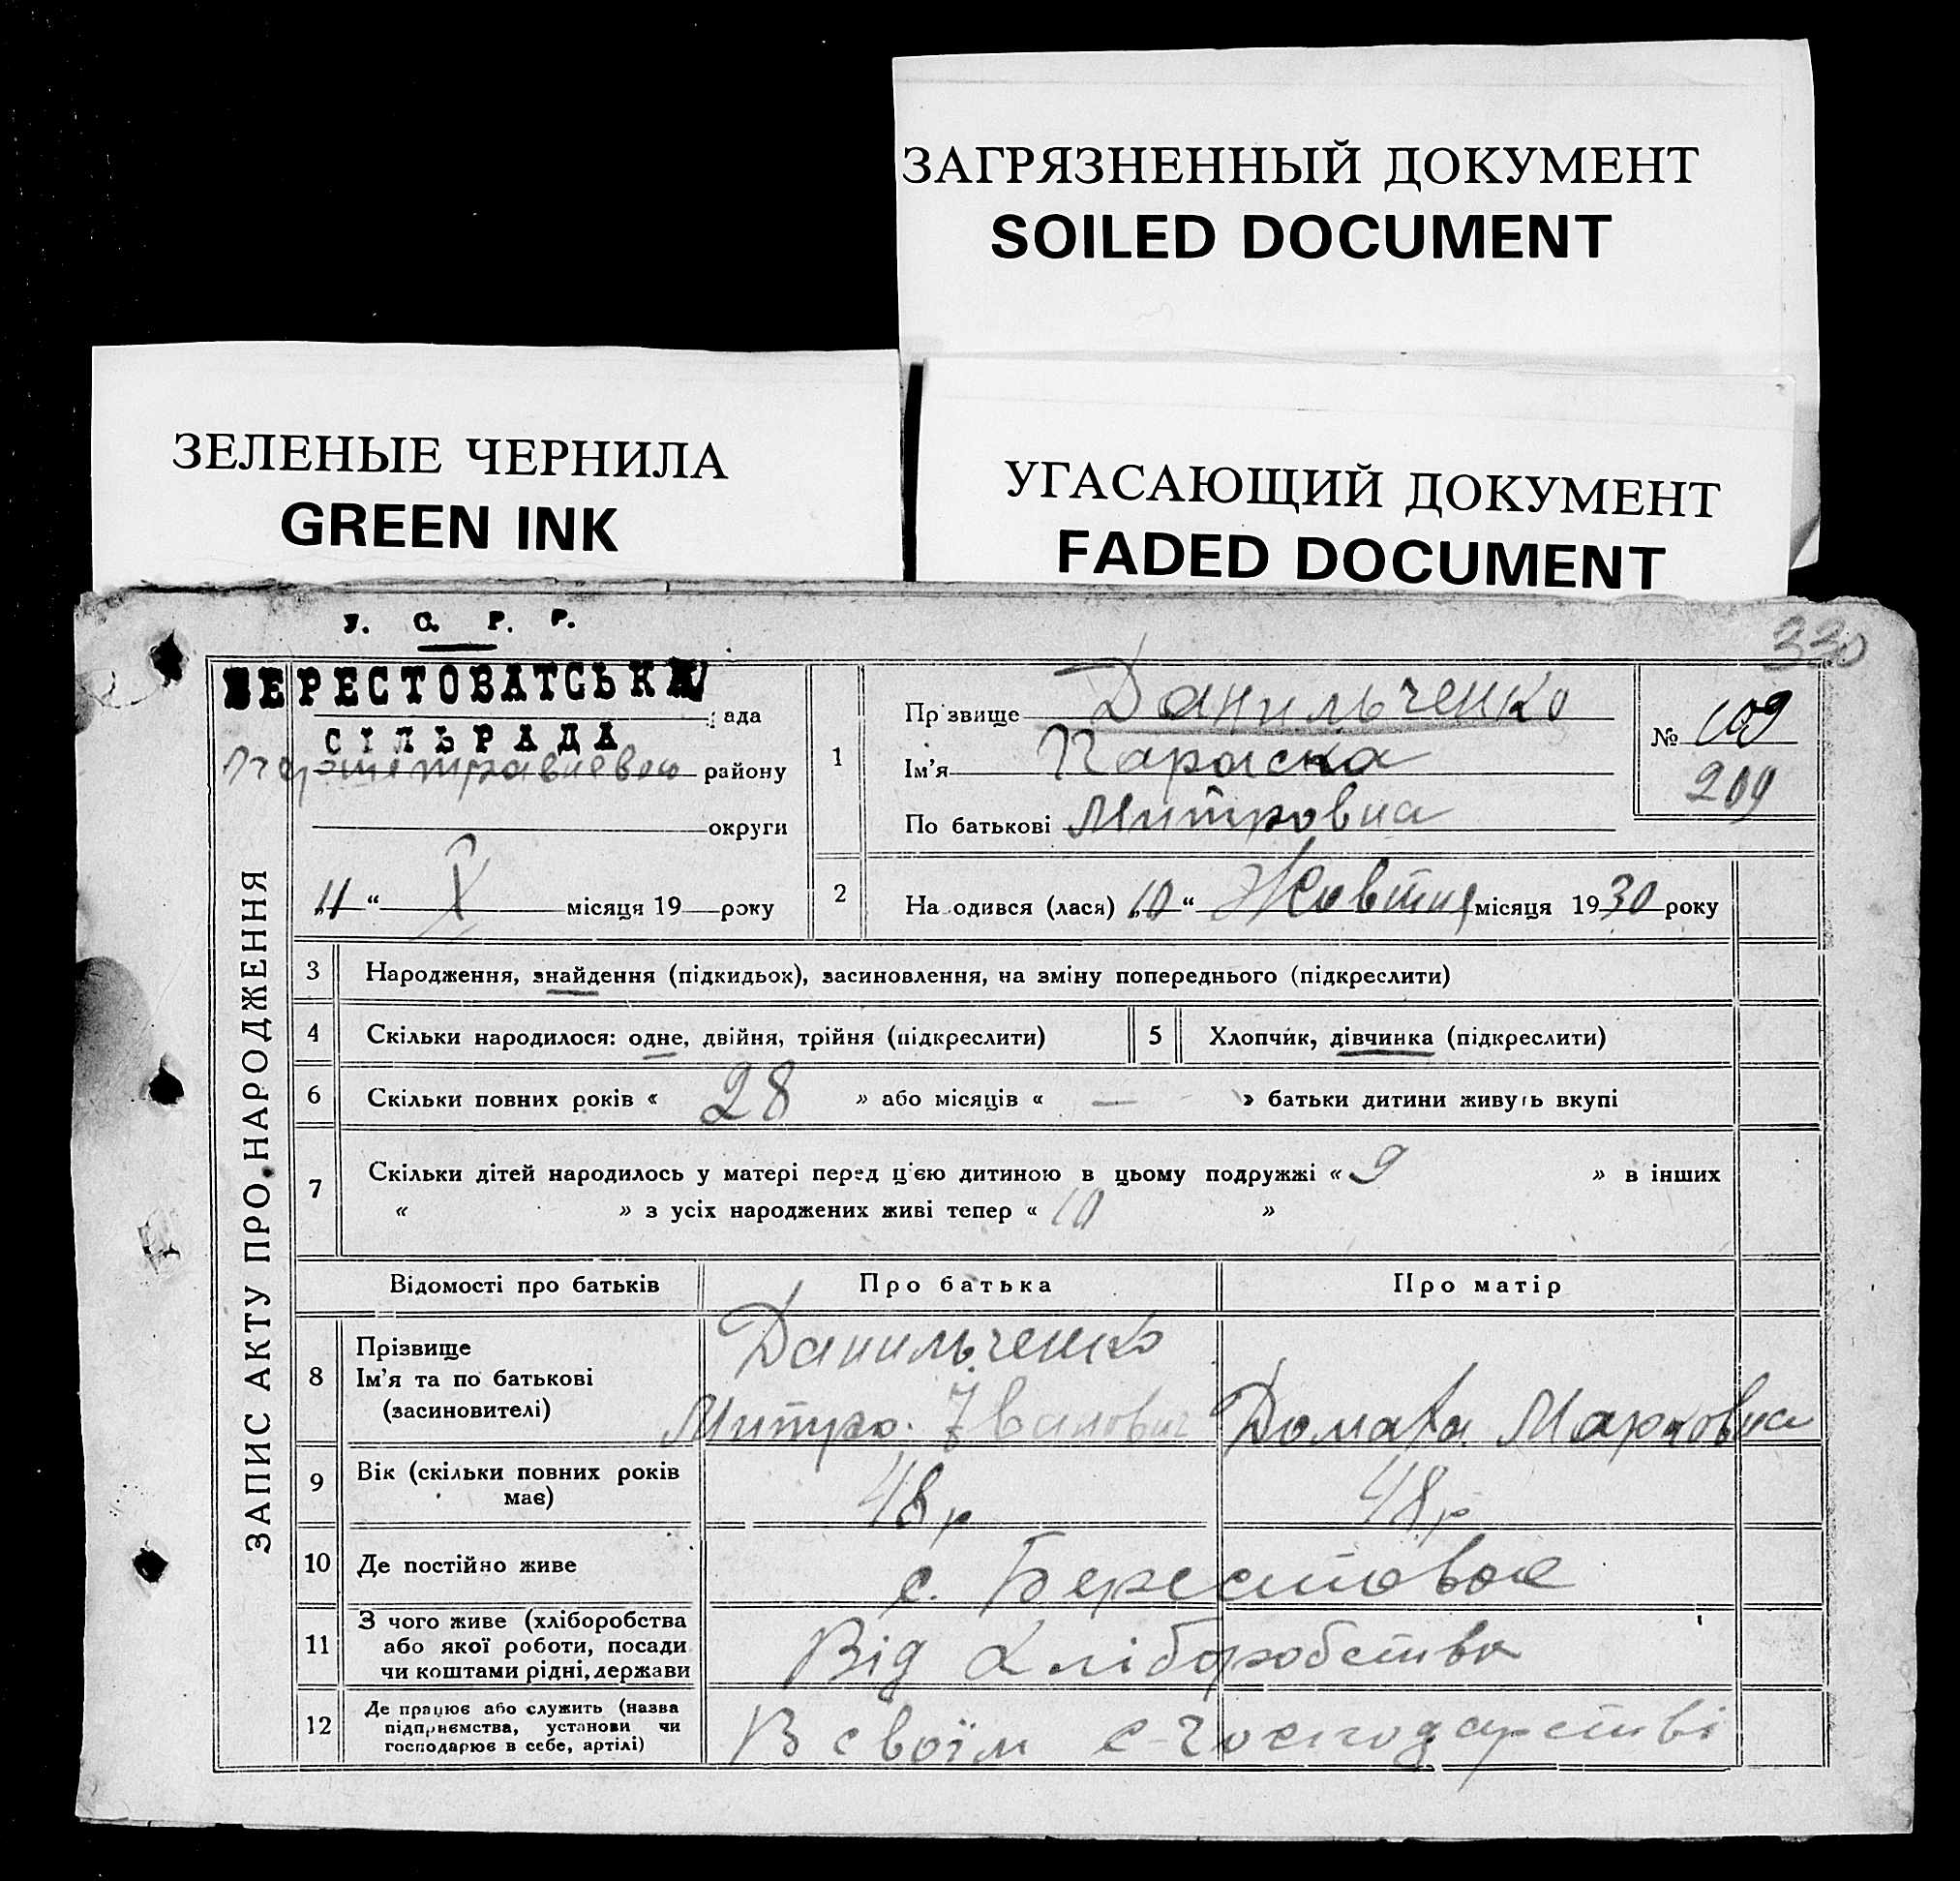 ЗАГРЯЗНЕННЫЙ ДОКУМЕНТ
SOILED DOCUMENT
ЗЕЛЕНЫЕ ЧЕРНИЛА
GREEN INK
УГАСАЮЩИЙ ДОКУМЕНТ
FADED DOCUMENT
330
У. С. Р. Р.
БЕРЕСТОВАТСЬКА
СІЛЬРАДА
района
району
округи
„11“ X місяця 19 року
ЗАПИС АКТУ ПРО НАРОДЖЕННЯ
1
Прізвище Данильченко
Ім'я Параска
По батькові Митровна
№ 109
209
2 На одився (лася) „10“ Жовтня місяця 1930 року
3 Народження, знайдення (підкидьок), засиновлення, на зміну попереднього (підкреслити)
4 Скільки народилося: одне, двійня, трійня (підкреслити) 5 Хлопчик, дівчинка (підкреслити)
6 Скільки повних років « 28 » або місяців « — » батьки дитини живуть вкупі
7 Скільки дітей народилось у матері перед ц'єю дитиною в цьому подружжі « 9 » в інших
« » з усіх народжених живі тепер « 10 »
Відомості про батьків Про батька Про матір
8 Прізвище
Ім'я та по батькові
(засиновителі)
Данильченко
Митро Іванович Домаха Марковна
9 Вік (скільки повних років
має)
48 р 48 р
10 Де постійно живе с. Берестовое
11 З чого живе (хліборобства
або якої роботи, посади
чи коштами рідні, держави
Від хліборобства
12 Де працює або служить (назва
підприємства, установи чи
господарює в себе, артілі)
В своїм с-господарстві